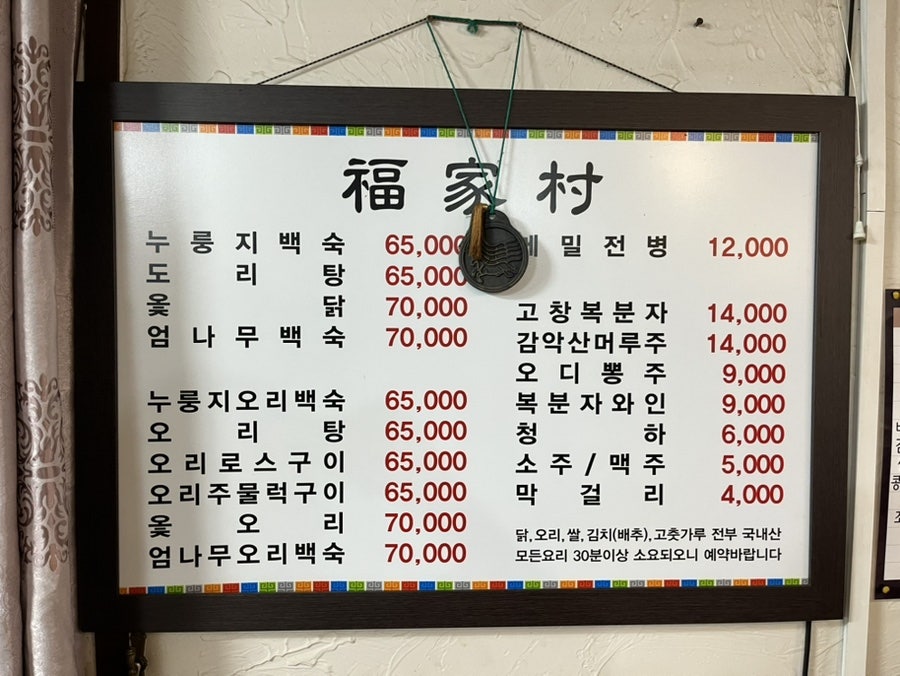 福家村
누룽지백숙 65,000
도리탕 65,000
옻닭 70,000
엄나무백숙 70,000
누룽지오리백숙 65,000
오리탕 65,000
오리로스구이 65,000
오리주물럭구이 65,000
옻오리 70,000
엄나무오리백숙 70,000
메밀전병 12,000
고창복분자 14,000
감악산머루주 14,000
오디뽕주 9,000
복분자와인 9,000
청하 6,000
소주/맥주 5,000
막걸리 4,000
닭,오리,쌀,김치(배추),고춧가루 전부 국내산
모든요리 30분이상 소요되오니 예약바랍니다